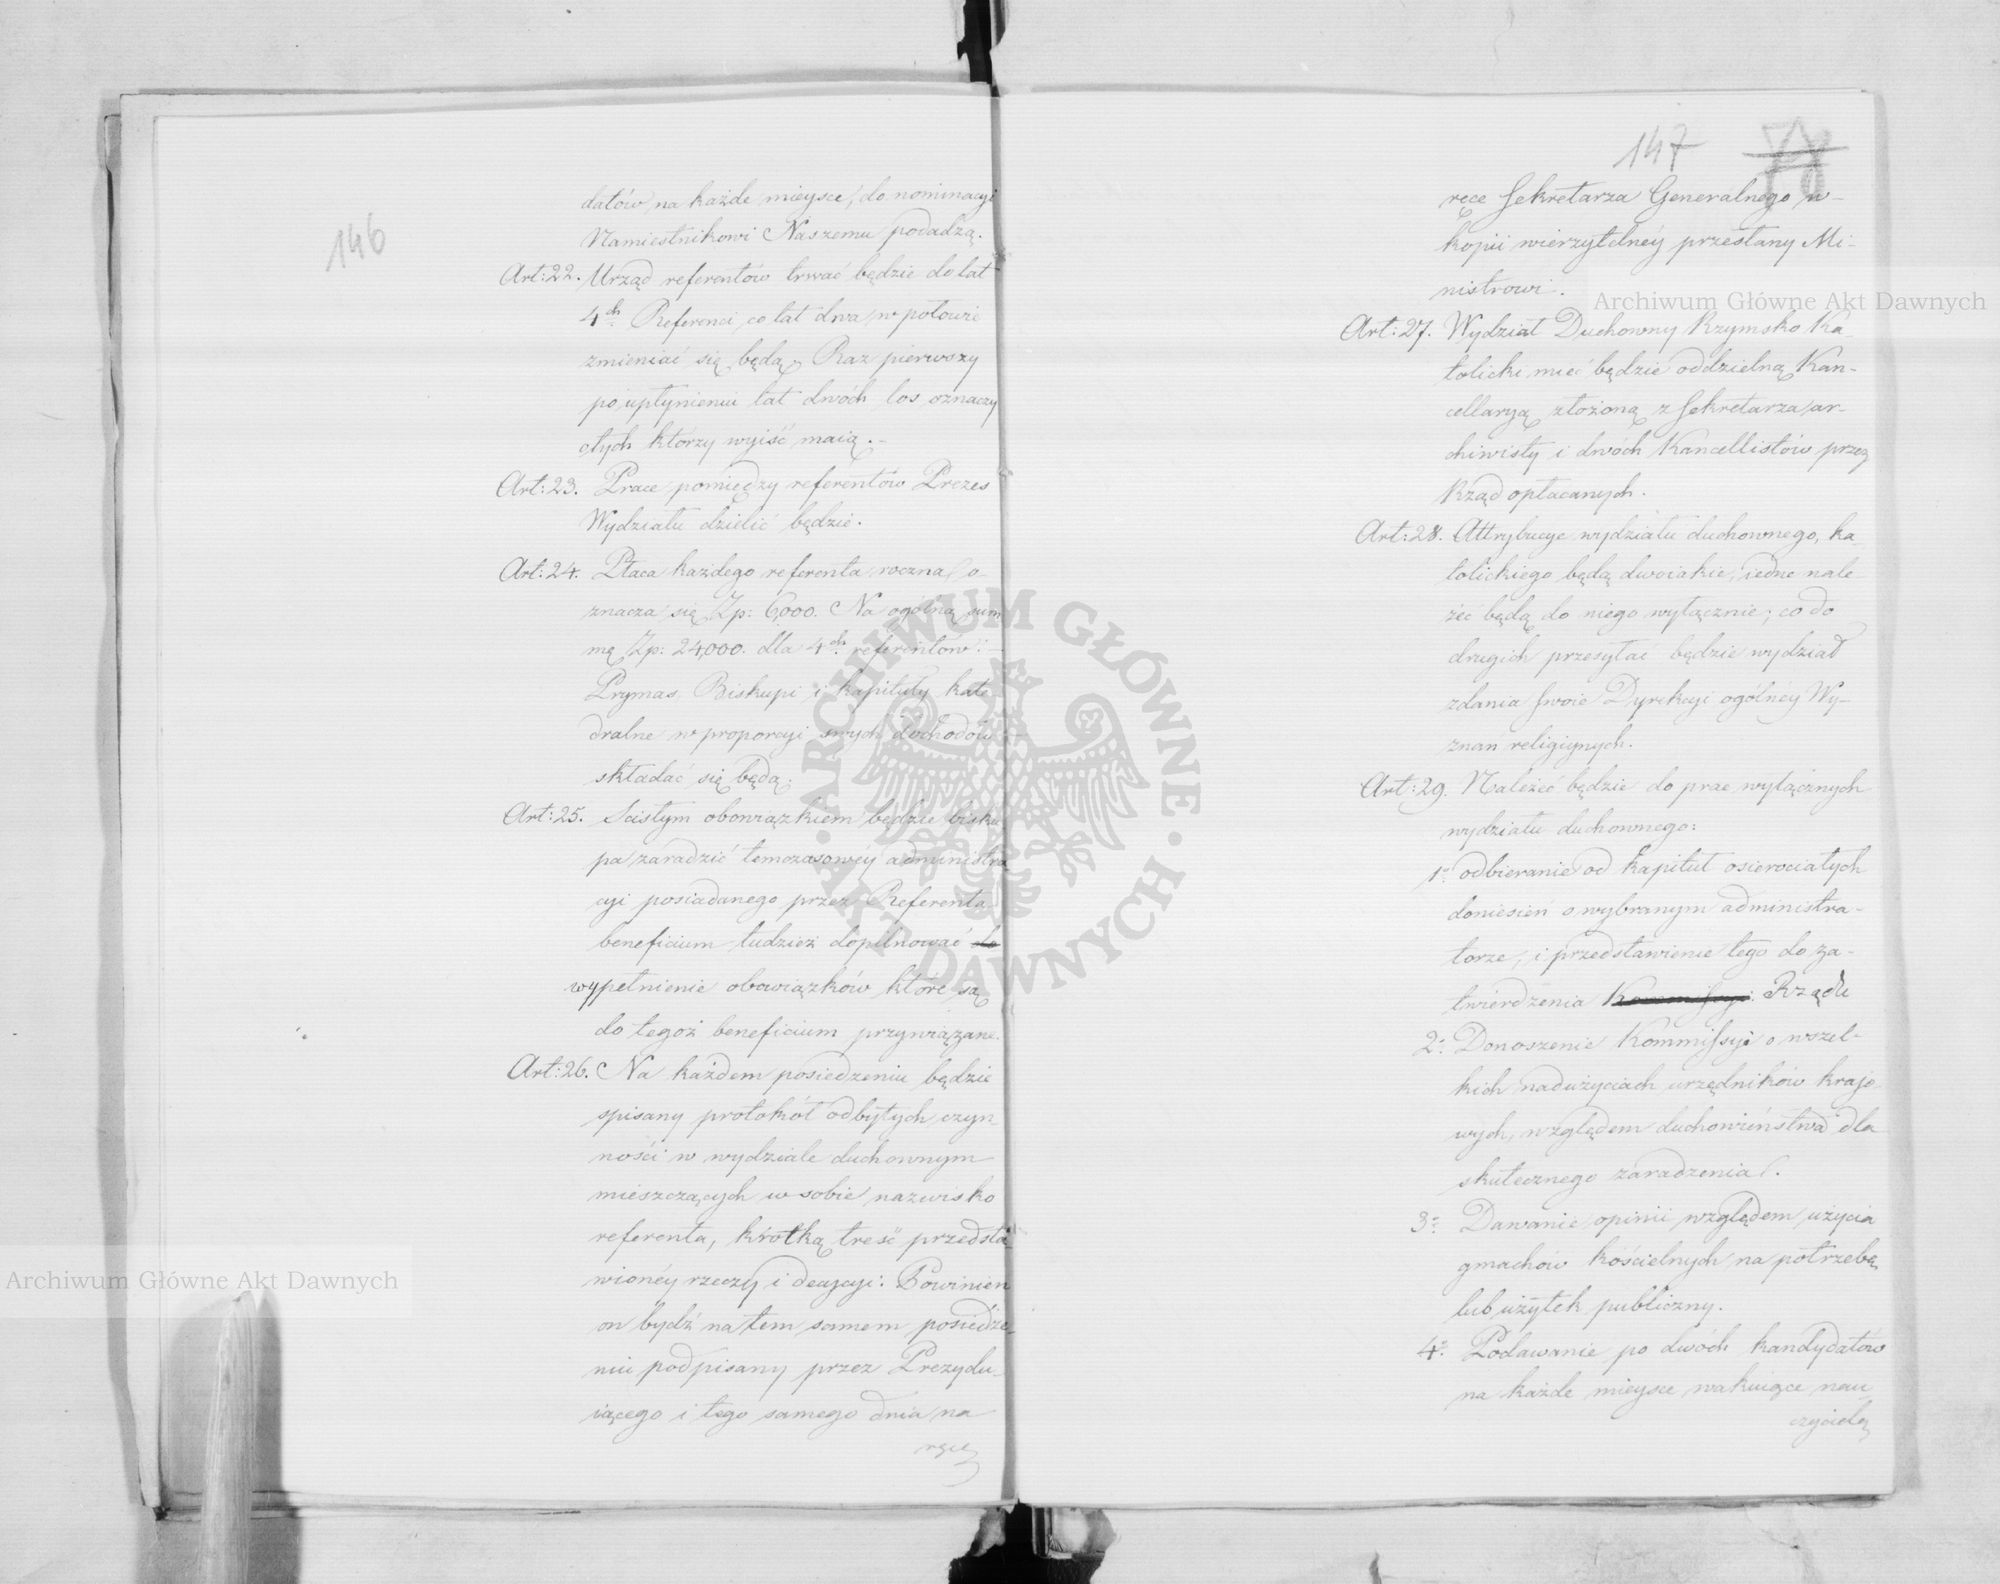 146
datów na każde mieysce, do nominacyi
Namiestnikowi Naszemu podadzą.
Art: 22. Urząd referentów trwać będzie do lat
4ch Referenci co lat dwa w połowie
zmieniać się będą, Raz pierwszy
po upłynieniu lat dwóch los oznaczy
tych którzy wyiść maią.
Art: 23. Prace pomiędzy referentów Prezes
Wydziału dzielić będzie.
Art: 24. Płaca każdego referenta roczna o-
znacza się Zp: 6,000. Na ogólną sum
mę Zp: 24,000. dla 4ch referentów:
Prymas Biskupi i kapituły kate
dralne w proporcyi swych dochodów
składać się będą.
Art: 25. Scisłym obowiązkiem będzie bisku
pa zaradzić temczasowéy administra
cyi posiadanego przez Referenta
beneficium tudzież dopilnować do
wypełnienie obowiązków które są
do tegoż beneficium przywiązane.
Art: 26. Na każdem posiedzeniu będzie
spisany protokół odbytych czyn
ności w wydziale duchownym
mieszczących w sobie nazwisko
referenta, krótką treść przedsta
wionéy rzeczy i decyzyi: Powinien
on bydź na tem samem posiedze-
niu podpisany przez Prezydu-
iącego i tego samego dnia na
ręce
147
ręce Sekretarza Generalnego w-
kopii wierzytelnéy przesłany Mi-
nistrowi.
Art: 27. Wydział Duchowny Rzymsko Ka-
tolicki mieć będzie oddzielną Kan-
cellaryą złożoną z Sekretarza, ar-
chiwisty i dwóch Kancellistów przez
Rząd opłacanych.
Art: 28. Attrybucye wydziału duchownego, ka-
tolickiego będą dwoiakie, iedne nale-
żeć będą do niego wyłącznie; co do
drugich przesyłać będzie wydział
zdania swoie Dyrekcyi ogólney Wy-
znań religiynych.
Art: 29. Należeć będzie do prac wyłącznych
wydziału duchownego:
1o odbieranie od Kapituł osierociałych
doniesień o wybranym administra-
torze, i przedstawienie tego do za-
twierdzenia Kommissyi Rządu
2o Donoszenie Kommissyi o wszel-
kich nadużyciach urzędników krajo
wych, względem duchowieństwa dla
skutecznego zaradzenia.
3o Dawanie opinii względem użycia
gmachów kościelnych na potrzebę
lub użytek publiczny.
4o Podawanie po dwóch kandydatów
na każde mieysce wakuiące nau-
czyciela
Archiwum Główne Akt Dawnych
Archiwum Główne Akt Dawnych
ARCHIWUM GŁÓWNE
AKT DAWNYCH